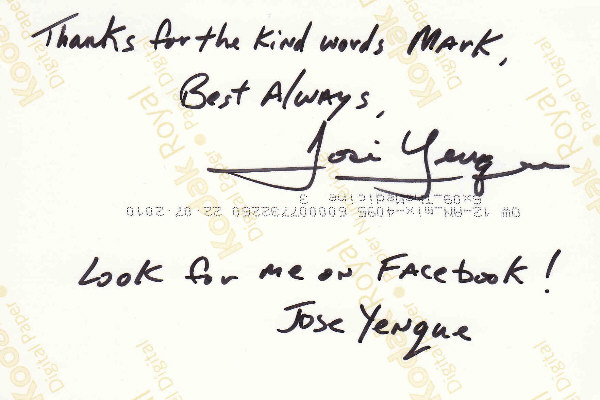 Thanks for the kind words Mark,
Best Always,
Jose Yenque
OW 12-AM_mix-4095 600007732260 22.07.2010
6x09_TheMedicine 3
Look for me on Facebook!
Jose Yenque
Kodak Royal
Digital Paper • Papel Digital